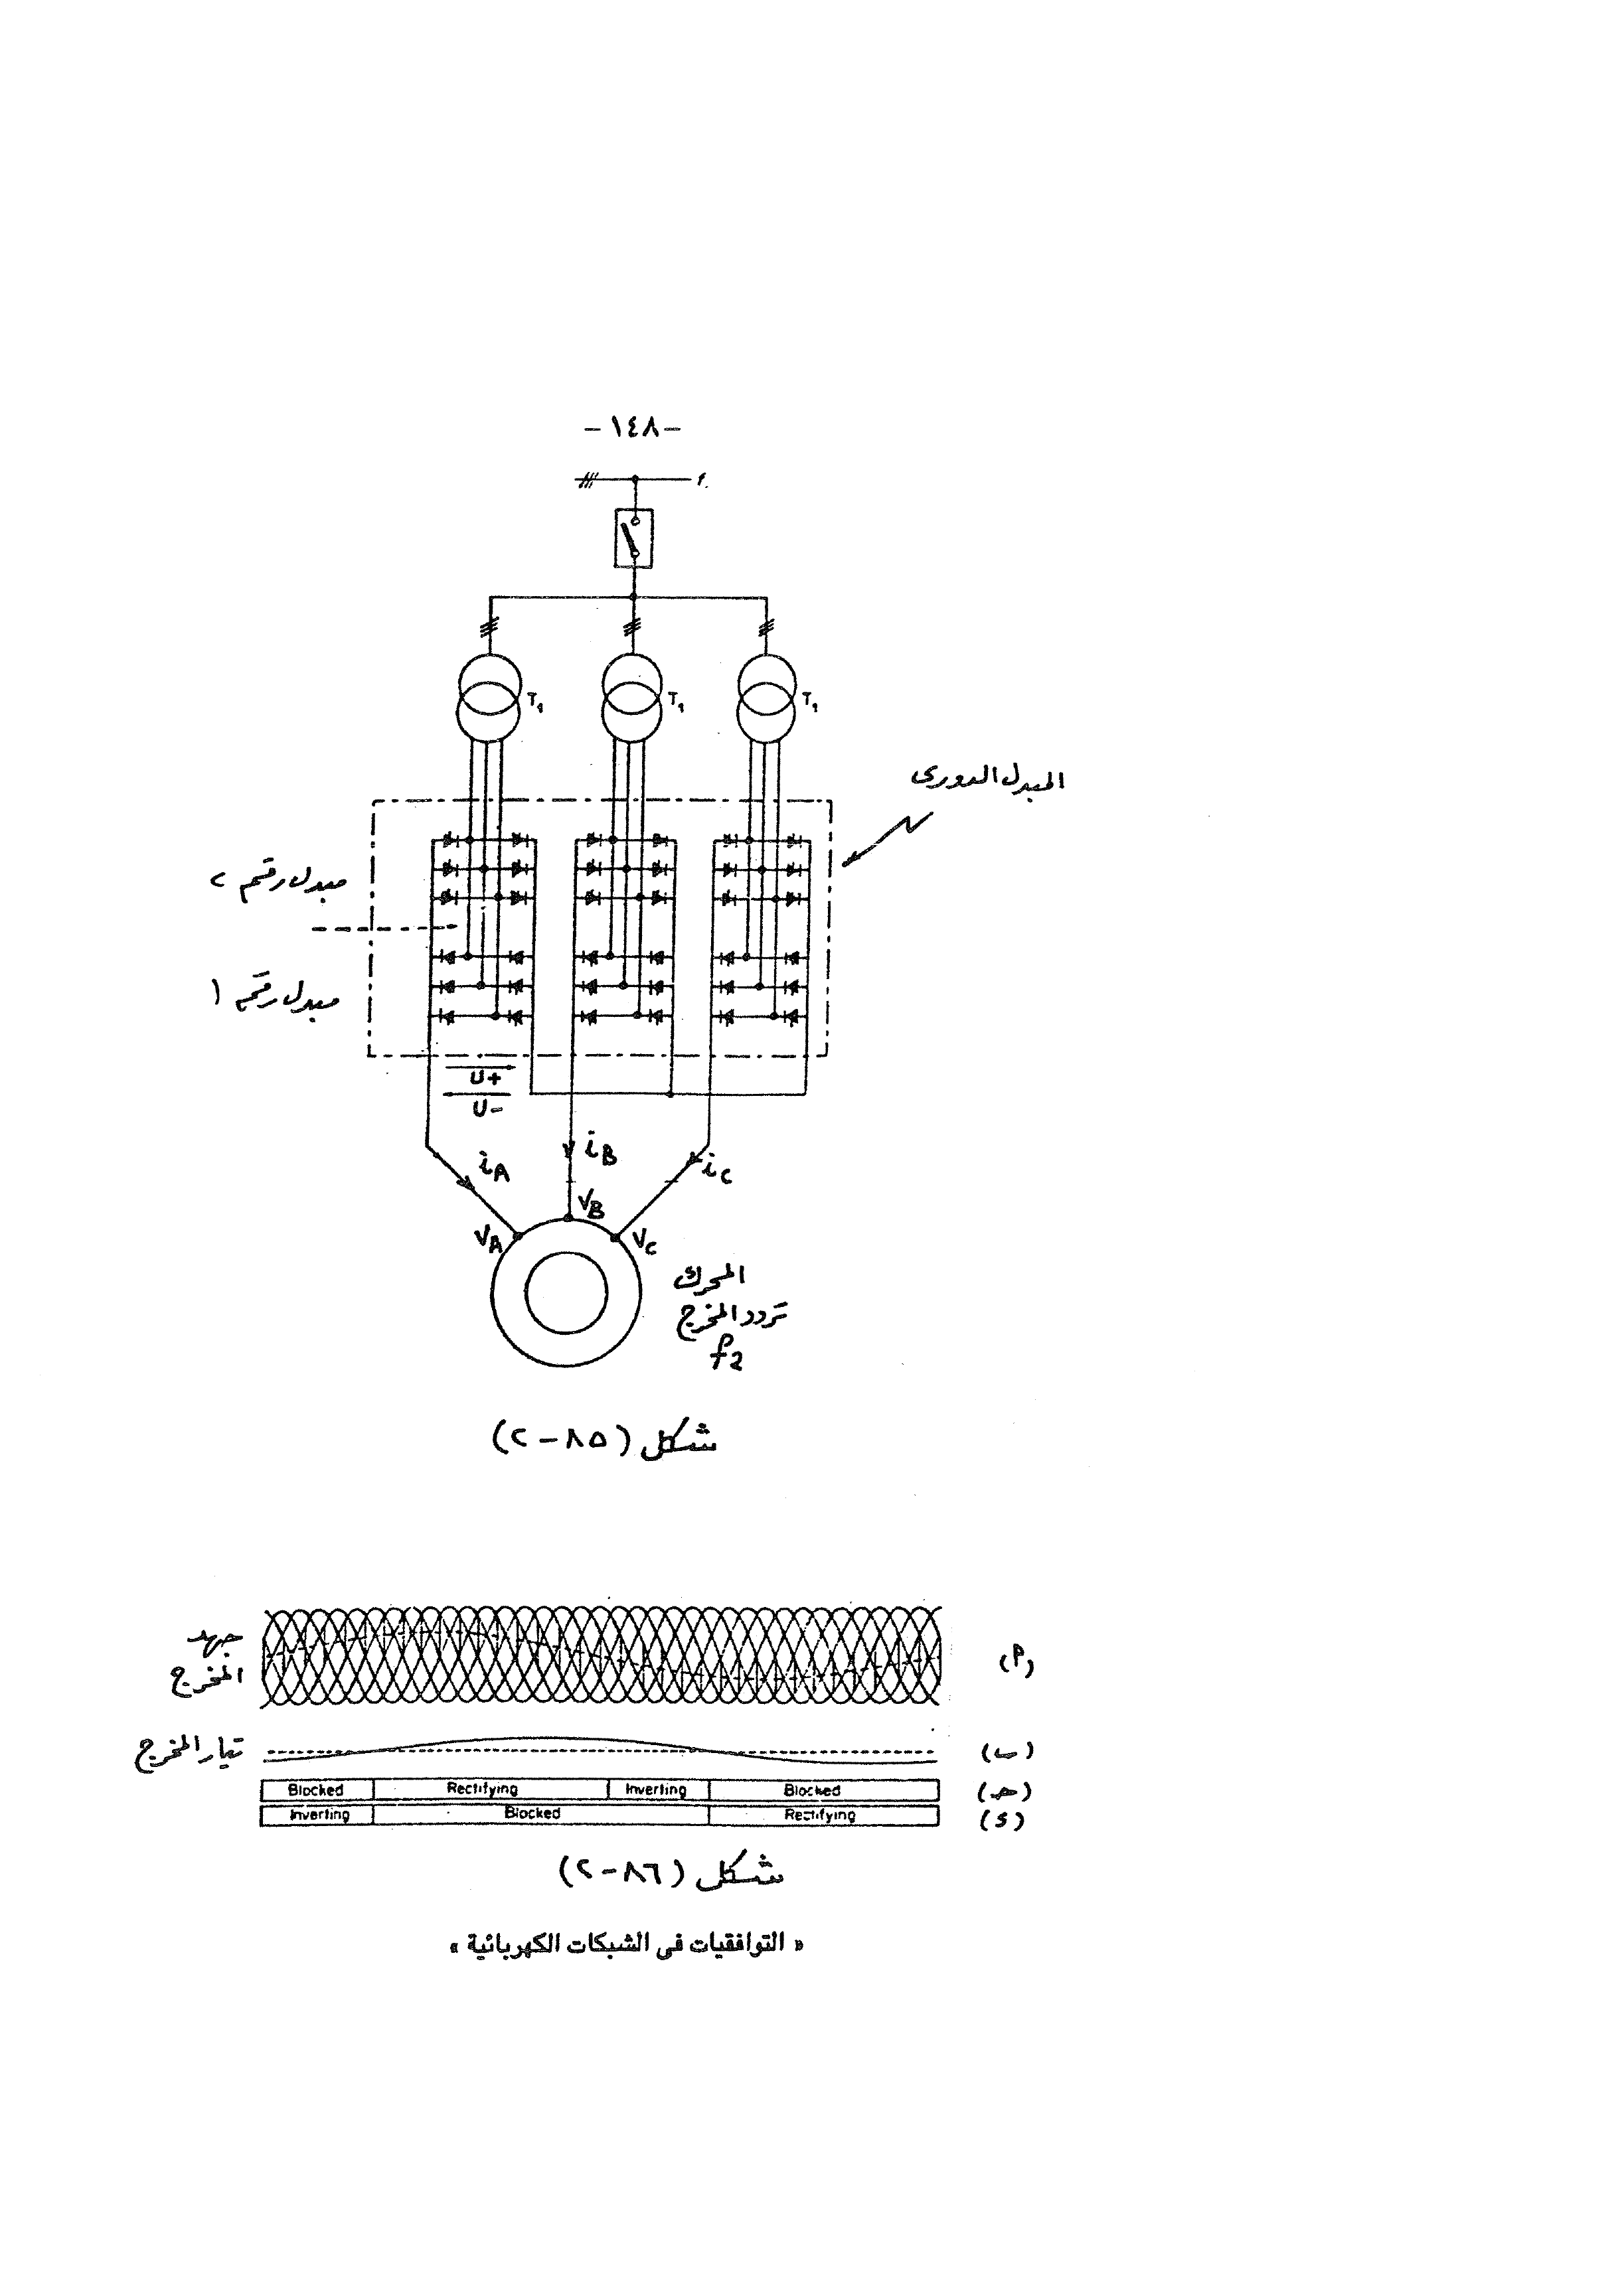 -١٤٨-
f.
T₁ T₁ T₁
المبدل الدورى
مبدل رقم ٢
مبدل رقم ١
U+
U-
iA iB iC
VA VB VC
المحرك
تردد المخرج
f2
شكل (٨٥-٢)
جهد
المخرج
(أ)
تيار المخرج
(ب)
Blocked Rectifying Inverting Blocked
(جـ)
Inverting Blocked Rectifying
(د)
شكل (٨٦-٢)
« التوافقيات فى الشبكات الكهربائية »